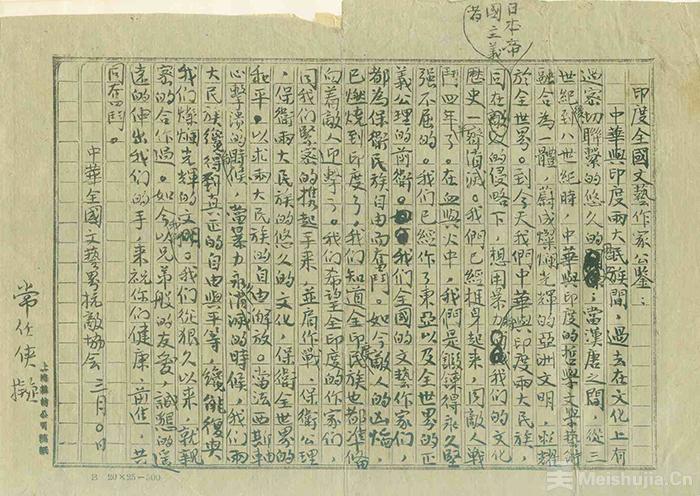 日本帝
國主義
者
印度全國文藝作家公鑒：
中華與印度兩大民族間，過去在文化上有
過密切聯繫的悠久的；當漢唐之間，從三
世紀到八世紀時，中華與印度的哲學文學藝術
融合為一體，蔚成燦爛光輝的亞洲文明，照耀
於全世界。到今天我們中華與印度兩大民族，
同在的侵略下，想用暴力我們的文化
歷史一齊消滅。我們已經挺身起來，同敵人戰
鬥四年了。在血與火中，我們是鍛鍊得永久堅
強不屈的。我們已經作了東亞以及全世界的正
義公理的前衛。我們全國的文藝作家們，
都為保衛民族自由而奮鬥。如今敵人的凶焰，
已燃燒到印度了，我們知道全印民族也都準備
向着敵人迎擊了。我們希望全印度的作家們，
同我們緊密的携起手來，並肩作戰，保衛公理
，保衛兩大民族的悠久的文化，保衛全世界的
和平。以求兩大民族的自由解放。當法西斯軸
心擊潰的時候，當暴力永消滅的時候，我們兩
大民族纔得到真正的自由與平等，纔能復興
我們燦爛光輝的文明。我們從很久以來，就親
密的合作過。如今以兄弟般的友愛，誠懇的遙
遠的伸出我們的手，來祝你們健康，前進，共
同奮鬥。
中華全國文藝界抗敵協會 三月〇日
常任俠擬
B 20×25－500
美 Meishujia.Cn